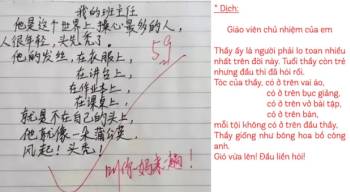 我的班主任
他是这个世界上操心最多的人，
人很年轻，头先秃了。
他的发丝，在衣服上，
在讲台上，
在作业本上
在课桌上，
就是不在自己的头上，
他就像一朵蒲公英
风起！头秃！
59
叫你妈来一趟！
* Dịch:
Giáo viên chủ nhiệm của em
Thầy ấy là người phải lo toan nhiều
nhất trên đời này. Tuổi thầy còn trẻ
nhưng đầu thì đã hói rồi.
Tóc của thầy, có ở trên vai áo,
có ở trên bục giảng,
có ở trên vở bài tập,
có ở trên bàn,
mỗi tội không có ở trên đầu thầy.
Thầy giống như bông hoa bồ công
anh.
Gió vừa lên! Đầu liền hói!